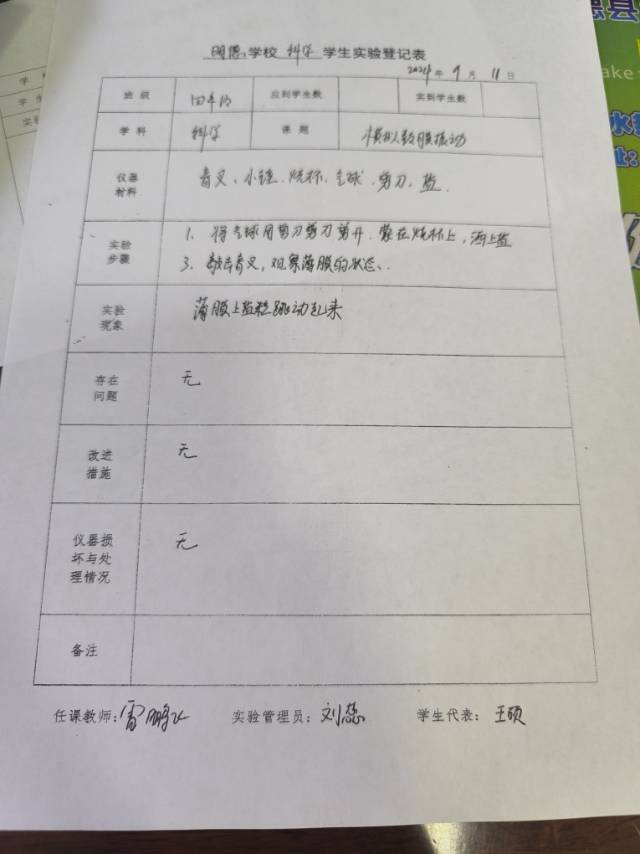 明德 学校 科学 学生实验登记表
2024年9月11日
班级 四年级 应到学生数 实到学生数
学科 科学 课题 模拟鼓膜振动
仪器材料 音叉、小锤、烧杯、气球、剪刀、盐
实验步骤 1、将气球用剪刀剪刀剪开、蒙在烧杯上，洒上盐
3、敲击音叉，观察薄膜的状态、
实验现象 薄膜上盐粒跳动起来
存在问题 无
改进措施 无
仪器损坏与处理情况 无
备注
任课教师：雷鹏飞 实验管理员：刘蕊 学生代表：王硕